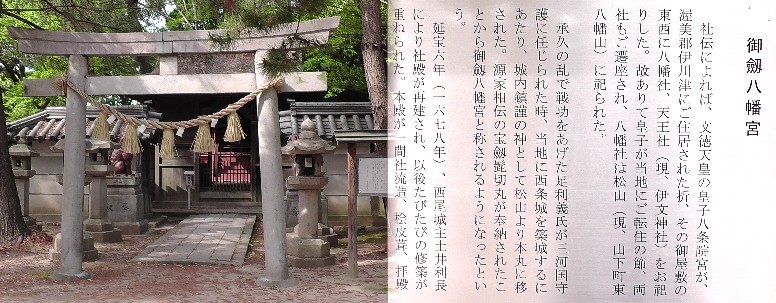 御劔八幡宮
社伝によれば、文徳天皇の皇子八条院宮が、
渥美郡伊川津にご住居された折、その御屋敷の
東西に八幡社、天王社（現、伊文神社）をお祀
りした。故ありて皇子が当地にご転住の節、両
社もご遷座され、八幡社は松山（現、山下町東
八幡山）に祀られた。
承久の乱で戦功をあげた足利義氏が三河国守
護に任じられた時、当地に西条城を築城するに
あたり、城内鎮護の神として松山より本丸に移
された。源家相伝の宝劔髭切丸が奉納されたこ
とから御劔八幡宮と称されるようになったとい
う。
延宝六年（一六七八年）、西尾城主土井利長
により社殿が再建され、以後たびたびの修築が
重ねられた。本殿が一間社流造、桧皮葺、拝殿